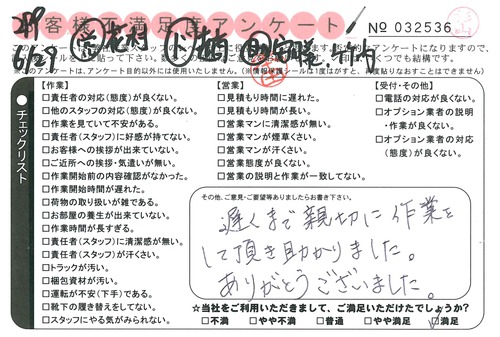 お客様不満足度アンケート
No 032536
6/29
【作業】
□責任者の対応(態度)が良くない。
□他のスタッフの対応(態度)が良くない。
□作業を見ていて不安がある。
□責任者(スタッフ)に好感が持てない。
□お客様への挨拶が出来ていない。
□ご近所への挨拶・気遣いが無い。
□作業開始前の内容確認がなかった。
□作業開始時間が遅れた。
□荷物の取り扱いが雑である。
□お部屋の養生が出来ていない。
□作業時間が長すぎる。
□責任者(スタッフ)に清潔感が無い。
□責任者(スタッフ)が汗くさい。
□トラックが汚い。
□梱包資材が汚い。
□運転が不安(下手)である。
□靴下の履き替えをしてない。
□スタッフにやる気がみられない。
【営業】
□見積もり時間に遅れた。
□見積もり時間が長い。
□営業マンに清潔感が無い。
□営業マンが煙草くさい。
□営業マンが汗くさい。
□営業態度が良くない。
□営業の説明と作業が一致してない。
【受付・その他】
□電話の対応(態度)が良くない。
□オプション業者の説明
・作業が良くない。
□オプション業者の対応
(態度)が良くない。
チェックリスト
その他、ご意見・ご要望等ありましたらお書き下さい。
遅くまで親切に作業を
して頂き助かりました。
ありがとうございました。
☆当社をご利用いただきまして、ご満足いただけたでしょうか?
□不満 □やや不満 □普通 □やや満足 □満足